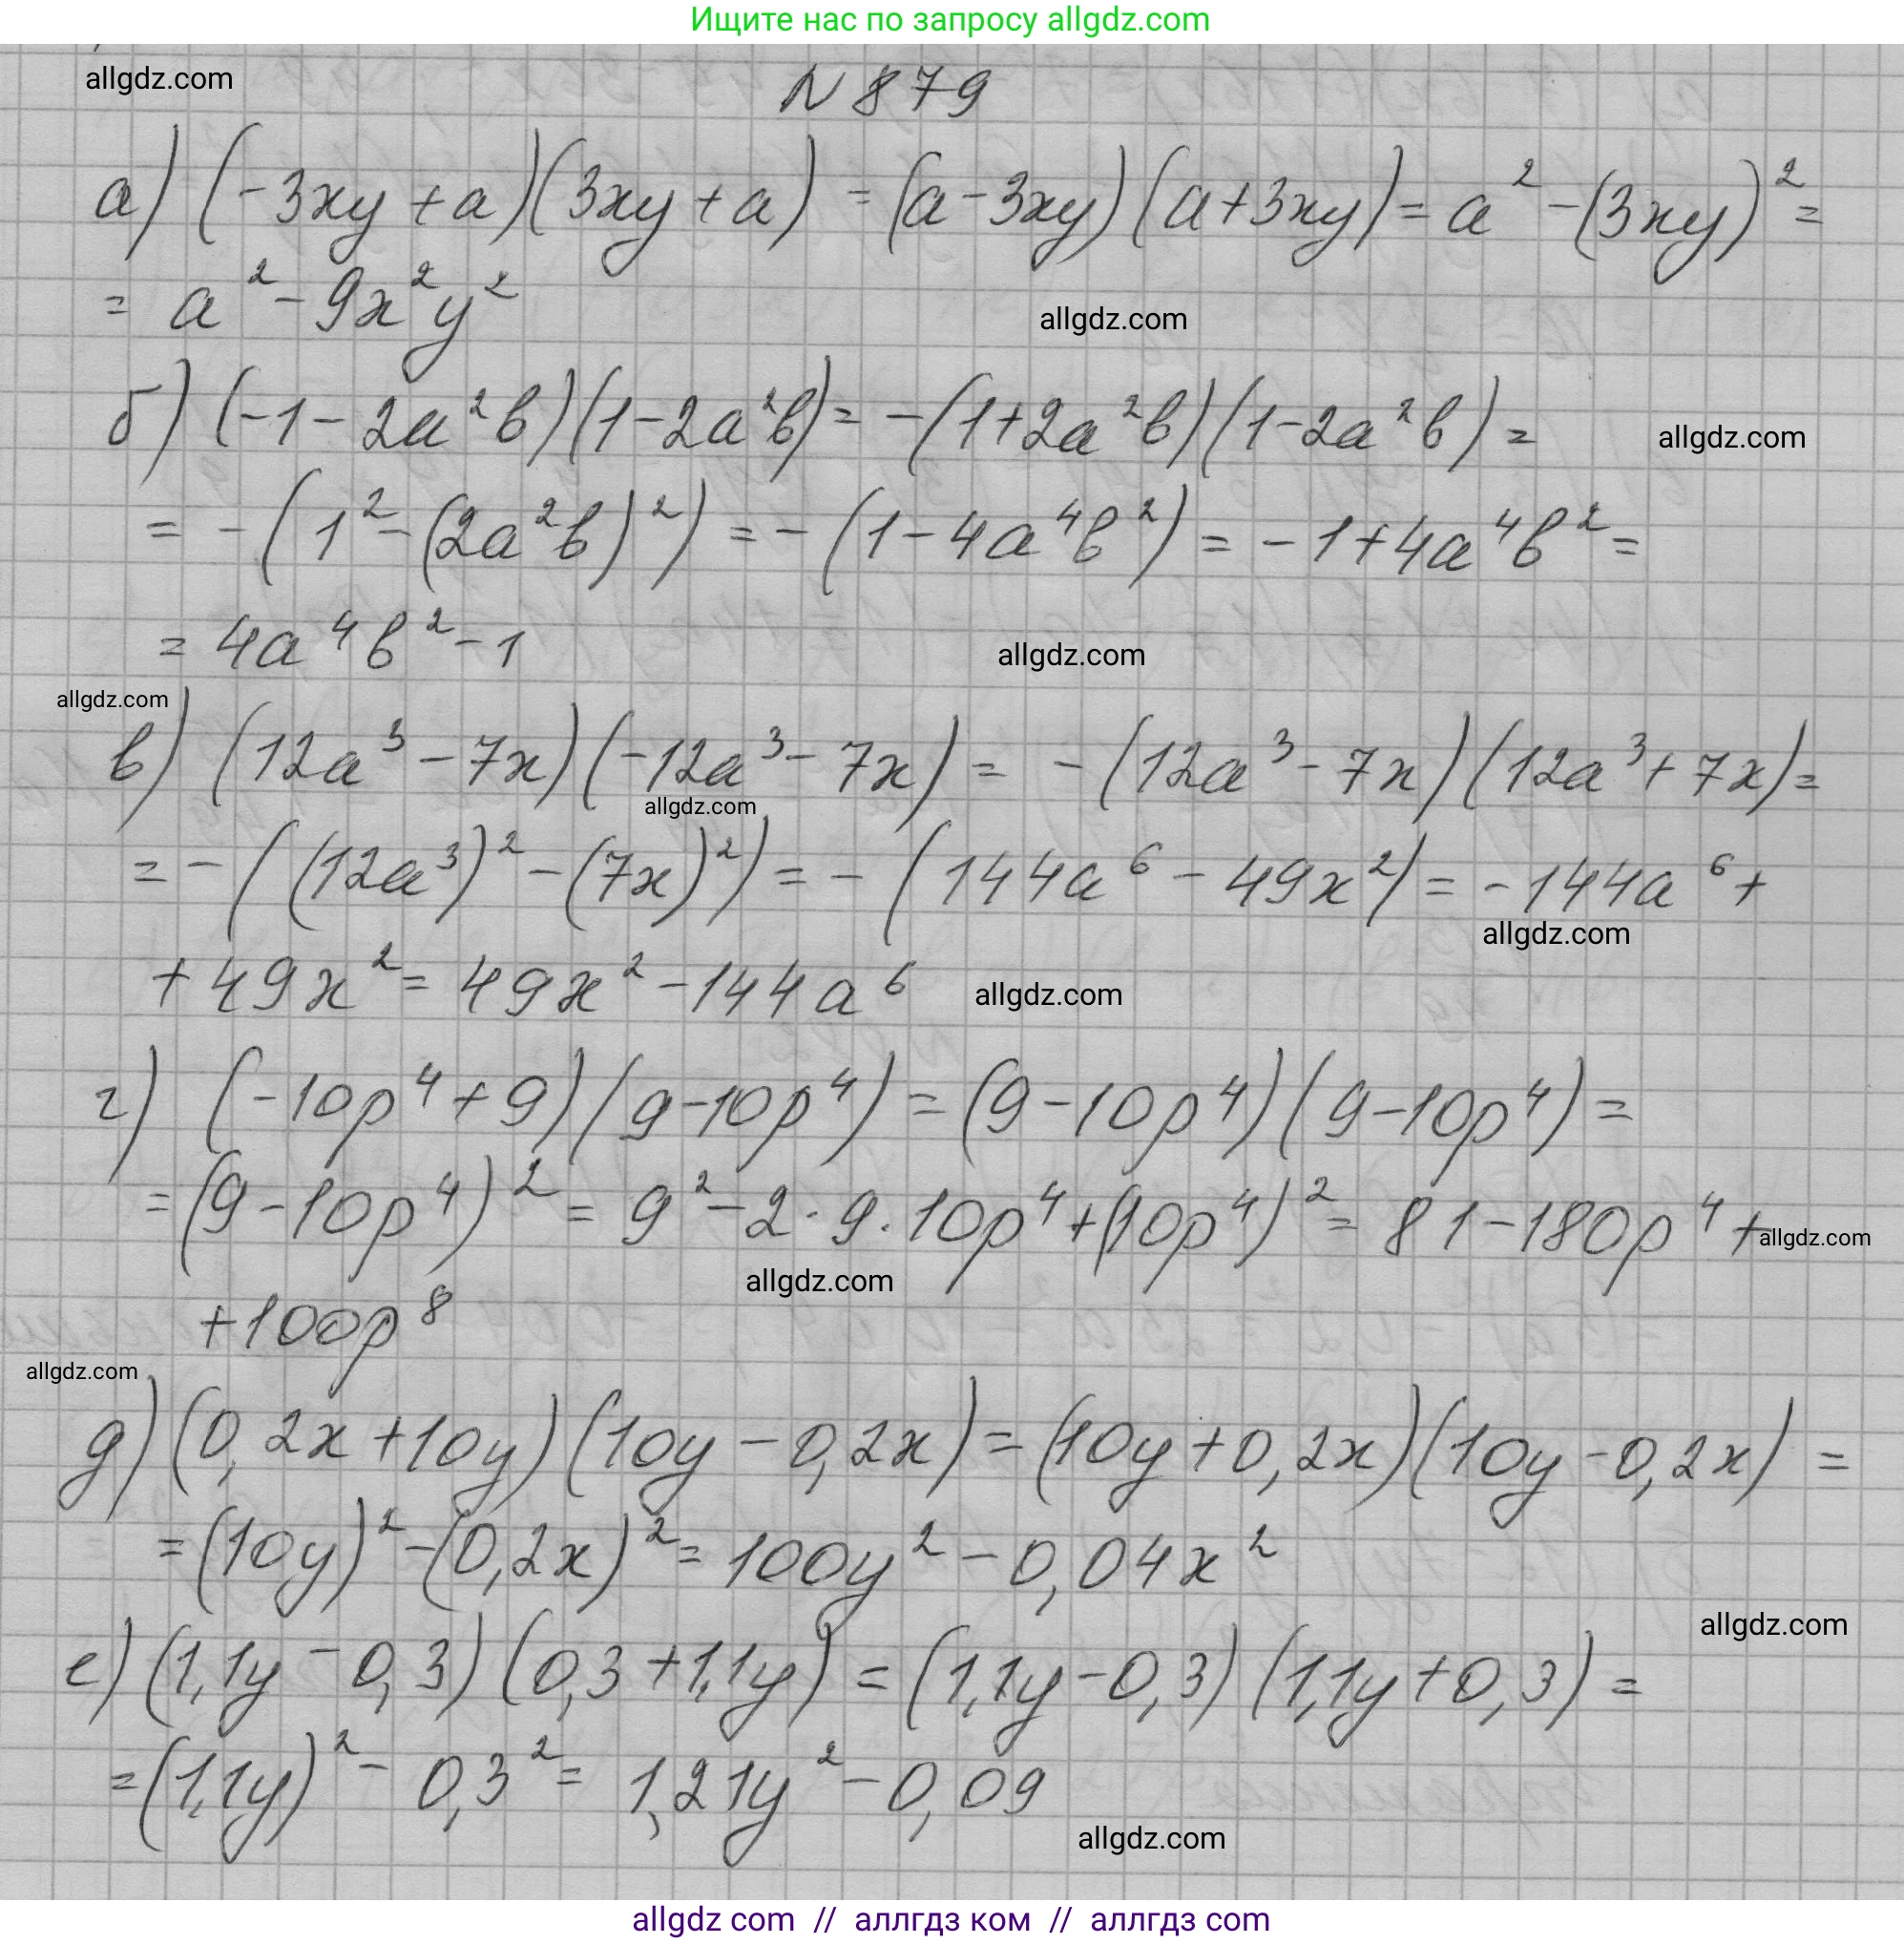 Ищите нас по запросу allgdz.com
allgdz.com
N 879
а) (-3xy + a)(3xy + a) = (a - 3xy)(a + 3xy) = a² - (3xy)² =
= a² - 9x²y²
allgdz.com
б) (-1 - 2a²b)(1 - 2a²b) = -(1 + 2a²b)(1 - 2a²b) =
allgdz.com
= -(1² - (2a²b)²) = -(1 - 4a⁴b²) = -1 + 4a⁴b² =
= 4a⁴b² - 1
allgdz.com
allgdz.com
в) (12a³ - 7x)(-12a³ - 7x) = -(12a³ - 7x)(12a³ + 7x) =
allgdz.com
= -((12a³)² - (7x)²) = -(144a⁶ - 49x²) = -144a⁶ +
allgdz.com
+ 49x² = 49x² - 144a⁶
allgdz.com
г) (-10p⁴ + 9)(9 - 10p⁴) = (9 - 10p⁴)(9 - 10p⁴) =
= (9 - 10p⁴)² = 9² - 2 · 9 · 10p⁴ + (10p⁴)² = 81 - 180p⁴ +
allgdz.com
allgdz.com
+ 100p⁸
allgdz.com
д) (0,2x + 10y)(10y - 0,2x) = (10y + 0,2x)(10y - 0,2x) =
= (10y)² - (0,2x)² = 100y² - 0,04x²
allgdz.com
е) (1,1y - 0,3)(0,3 + 1,1y) = (1,1y - 0,3)(1,1y + 0,3) =
= (1,1y)² - 0,3² = 1,21y² - 0,09
allgdz.com
allgdz com // аллгдз ком // аллгдз com